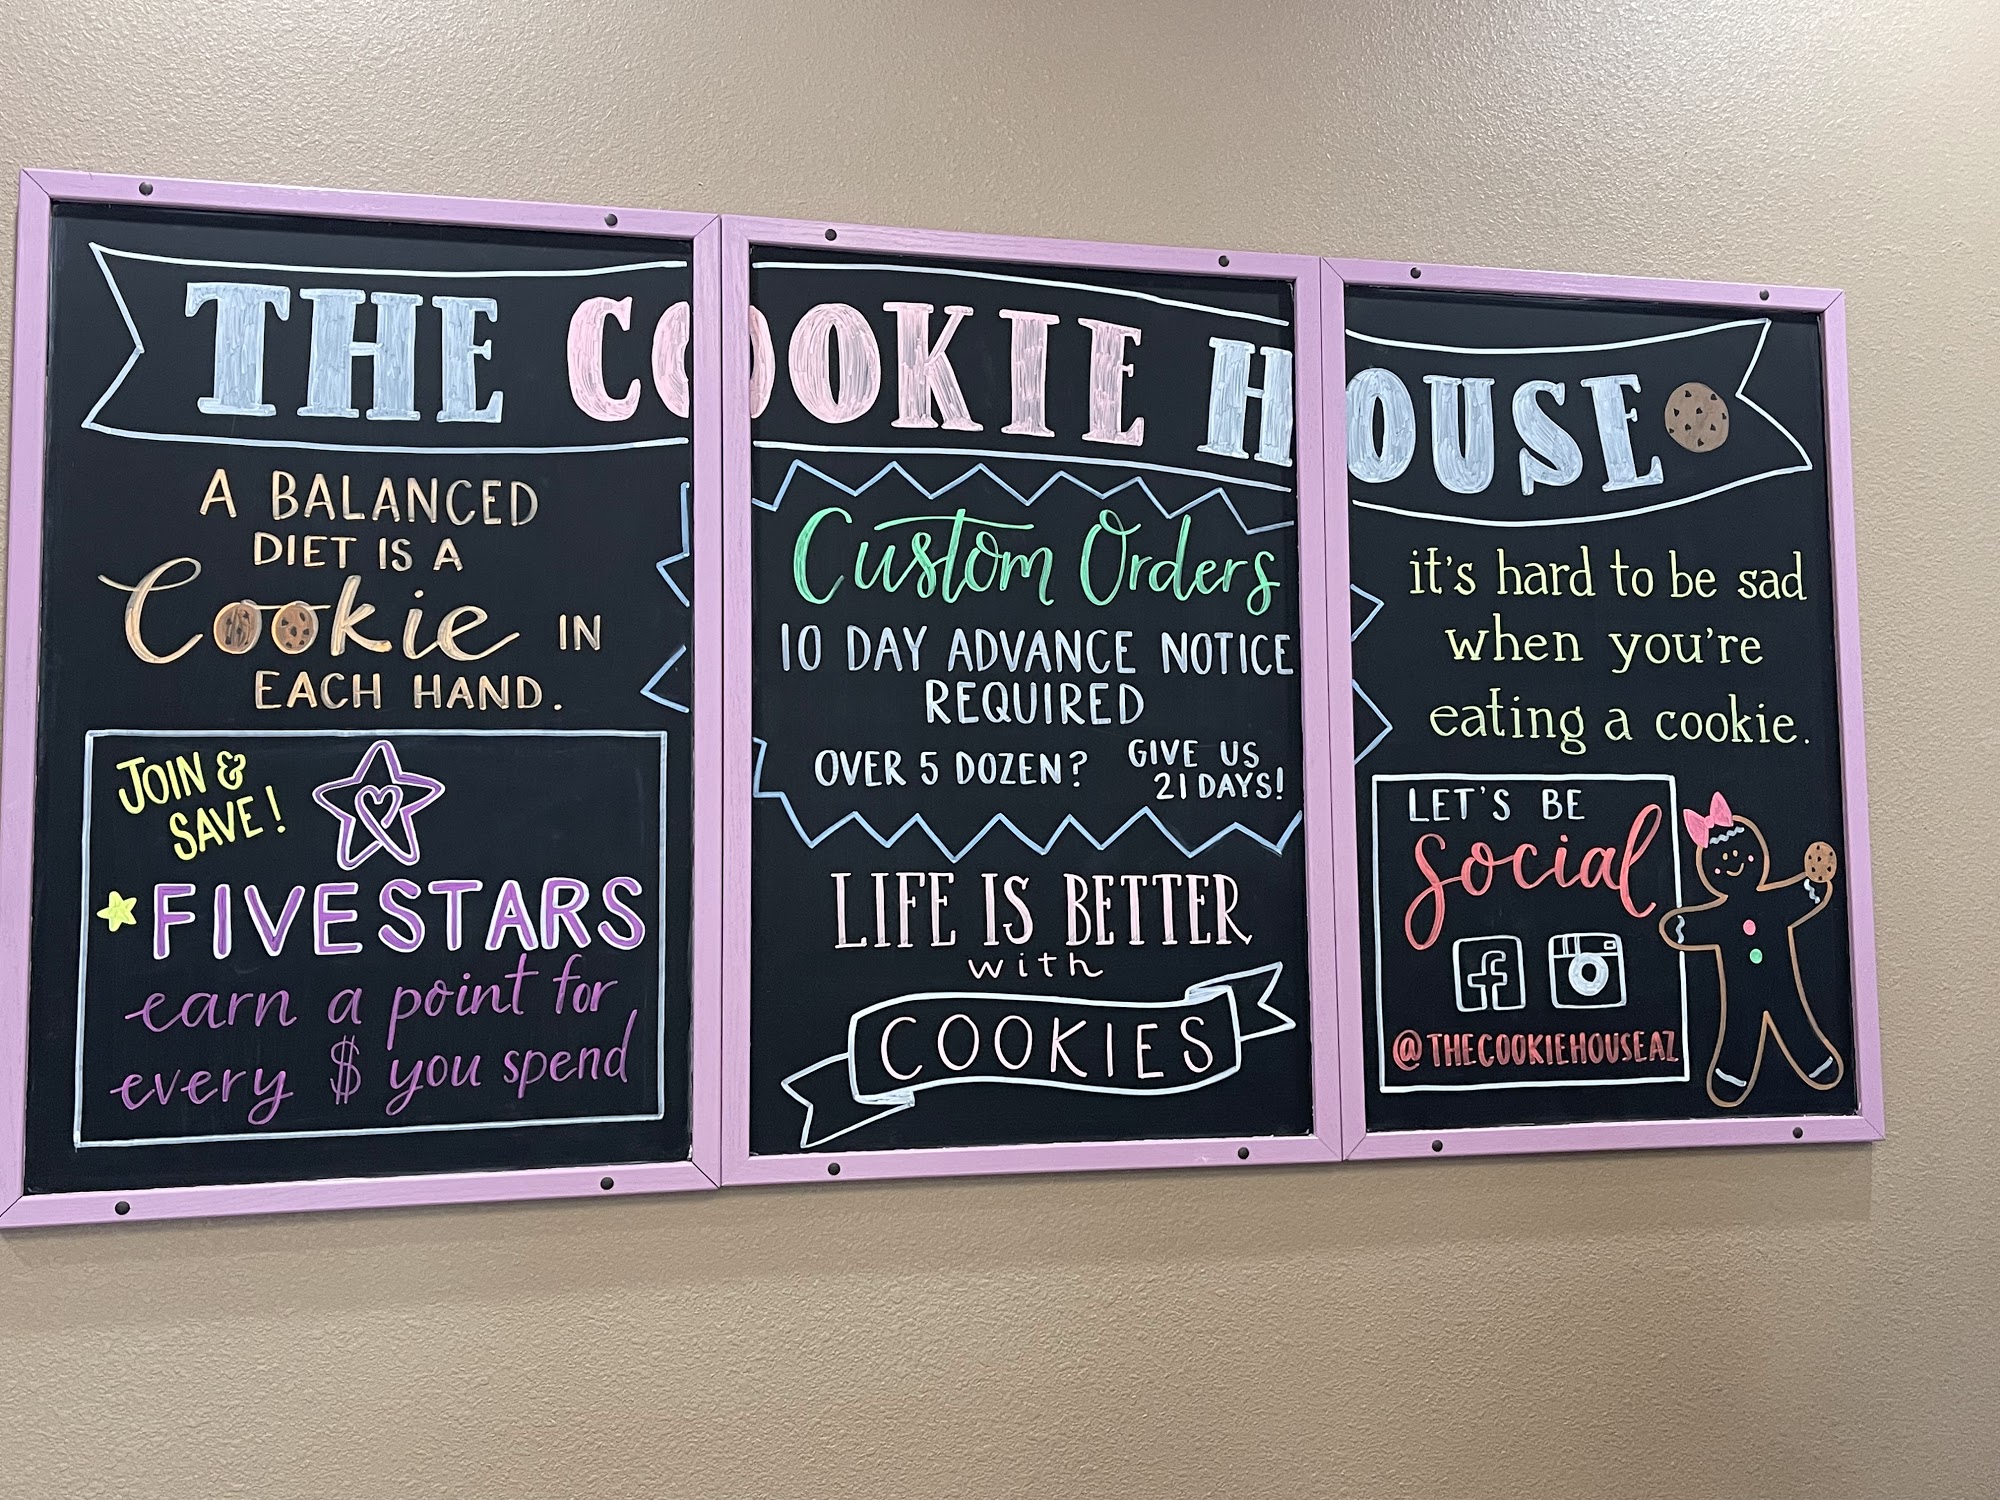 THE COOKIE HOUSE
A BALANCED
DIET IS A
Cookie IN
EACH HAND.
JOIN &
SAVE!
FIVESTARS
earn a point for
every $ you spend
Custom Orders
10 DAY ADVANCE NOTICE
REQUIRED
OVER 5 DOZEN? GIVE US
21 DAYS!
LIFE IS BETTER
with
COOKIES
it's hard to be sad
when you're
eating a cookie.
LET'S BE
social
f
@THECOOKIEHOUSEAZ